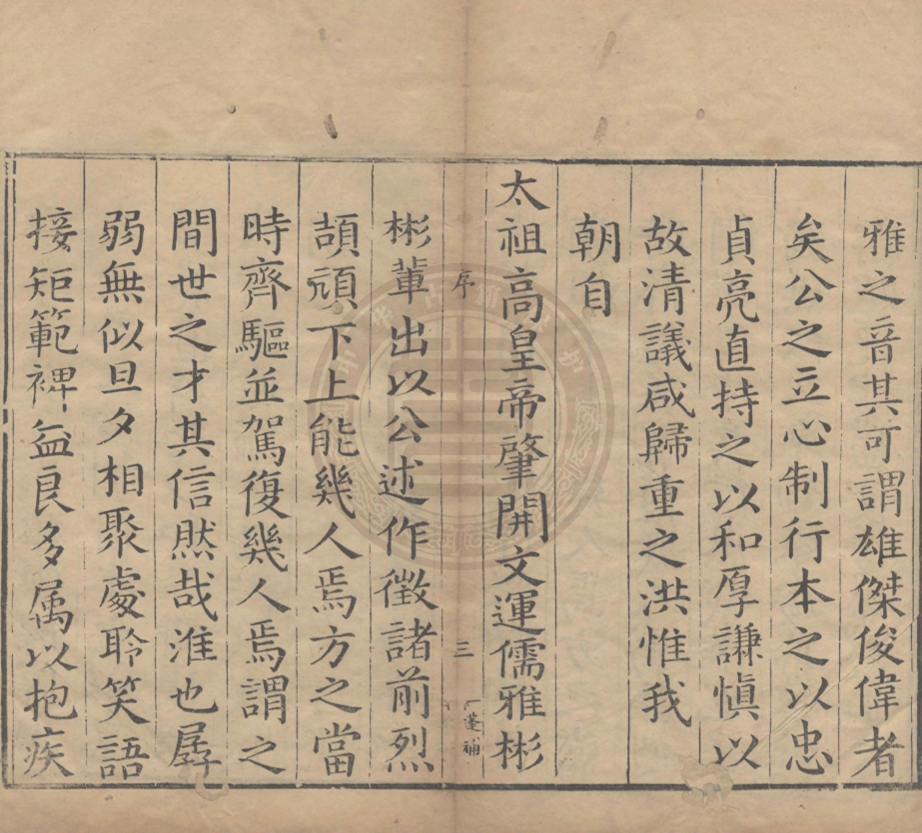 雅之音其可謂雄傑俊偉者
矣公之立心制行本之以忠
貞亮直持之以和厚謙慎以
故清議咸歸重之洪惟我
朝自
太祖高皇帝肇開文運儒雅彬
序
三
蓬補
彬輩出以公述作徵諸前烈
頡頏下上能幾人焉方之當
時齊驅並駕復幾人焉謂之
間世之才其信然哉淮也孱
弱無似旦夕相聚處聆笑語
接矩範裨益良多属以抱疾